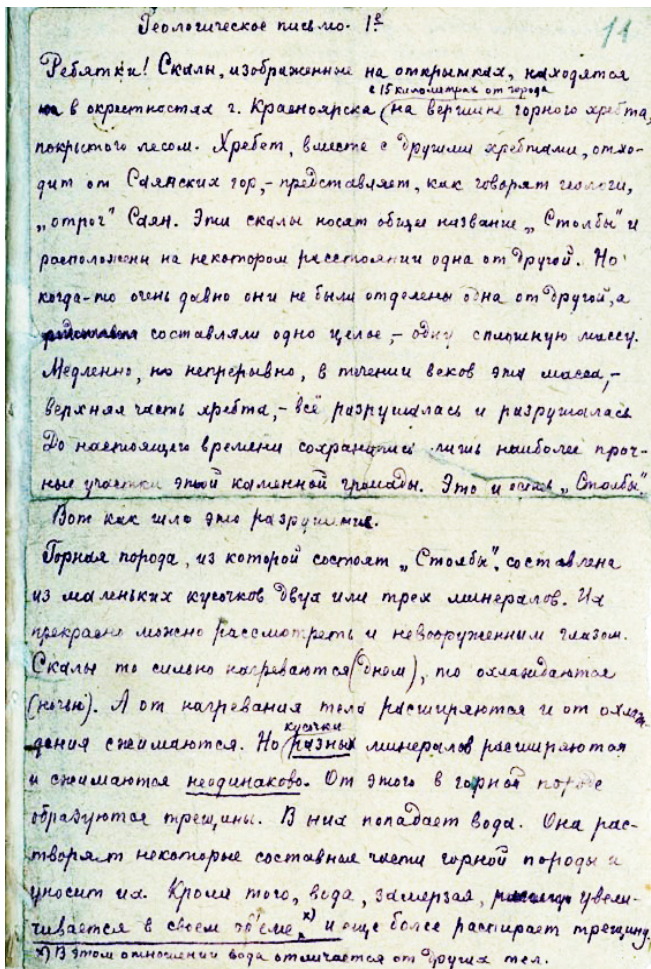 Геологическое письмо. 1е
11
Ребятки! Скалы, изображенные на открытках, находятся
с 15 километрах от города
в окрестностях г. Красноярска (на вершине горного хребта,
покрытого лесом. Хребет, вместе с другими хребтами, отхо-
дит от Саянских гор,- представляет, как говорят геологи,
„отрог" Саян. Эти скалы носят общее название „Столбы" и
расположены на некотором расстоянии одна от другой. Но
когда-то очень давно они не были отделены одна от другой, а
составляли одно целое,- одну сплошную массу.
Медленно, но непрерывно, в течении веков эта масса,-
верхняя часть хребта,- всё разрушалась и разрушалась
До настоящего времени сохранились лишь наиболее проч-
ные участки этой каменной громады. Это и есть „Столбы".
Вот как шло это разрушение.
Горная порода, из которой состоят „Столбы", составлена
из маленьких кусочков двух или трех минералов. Их
прекрасно можно рассмотреть и невооруженным глазом.
Скалы то сильно нагреваются (днем), то охлаждаются
(ночью). А от нагревания тела расширяются и от охлаж-
кусочки
дения сжимаются. Но (разных минералов расширяются
и сжимаются неодинаково. От этого в горной породе
образуются трещины. В них попадает вода. Она рас-
творяет некоторые составные части горной породы и
уносит их. Кроме того, вода, замерзая, увели-
чивается в своем об'еме, х) и еще более расширает трещину.
х) В этом отношении вода отличается от других тел.